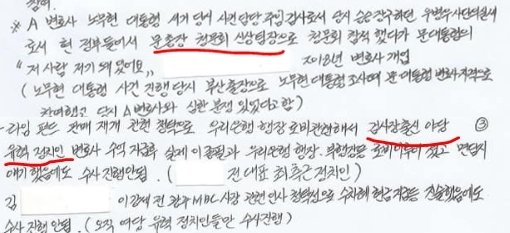 ※ A 변호사 노무현 대통령 서거 당시 사건 담당 주임검사로서 당시 승승장구하던 우병우 사단의 실세
로서 현 정부들어서 문총장 청문회 신상팀장으로 청문회 참석 했다가 문 대통령의
"저 사람 저기 왜 있어요,, 2018년 변호사 개업
(노무현 대통령 사건 진행 당시 부산출장으로 노무현 대통령 조사시 문 대통령 변호사자격으로
참여했고 당시 A변호사와 심한 분쟁 있었다고 함)
- 라임 펀드 판매 재개 관련 청탁으로 우리은행 행장 로비 관련해서 검사장출신 야당 ③
유력 정치인 변호사 수억 지급후 실제 이종필과 우리은행 행장. 부행장등 로비 이루어졌고 면담시
얘기 했음에도 수사 진행안됨. ( 전 대표 최측근 정치인)
이강세 전 광주 MBC 사장 관련 인사 청탁성으로 수차례 현금지급등 진술했음에도
수사 진행 안됨. (오직 여당 유력 정치인들만 수사진행)